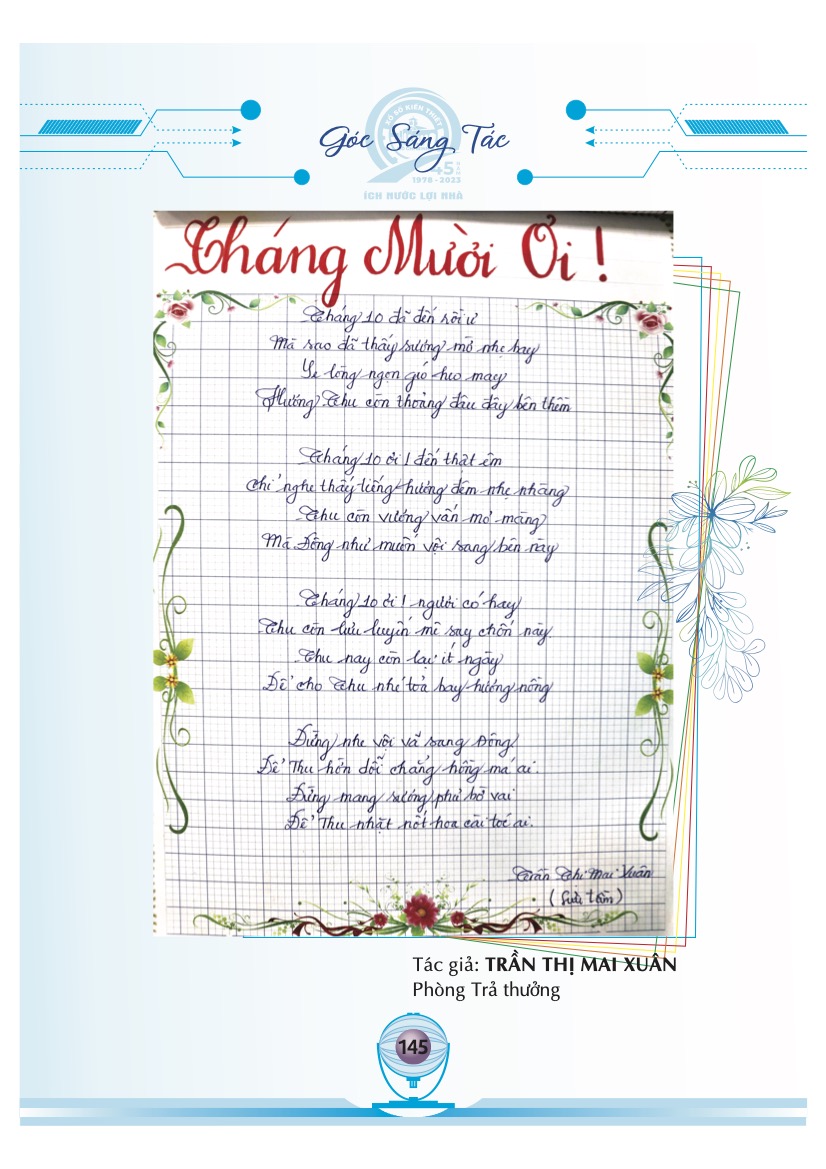 XỔ SỐ KIẾN THIẾT
Góc Sáng Tác
45 NĂM
1978 - 2023
ÍCH NƯỚC LỢI NHÀ
Tháng Mười Ơi !
Tháng 10 đã đến rồi ư
Mà sao đã thấy sương mờ nhẹ bay
Se lòng ngọn gió heo may
Hương Thu còn thoảng đâu đây bên thềm
Tháng 10 ơi ! đến thật êm
Chỉ nghe thấy tiếng hương đêm nhẹ nhàng
Thu còn vương vấn mơ màng
Mà Đông như muốn vội sang bên này
Tháng 10 ơi ! người có hay
Thu còn lưu luyến mê say chốn này.
Thu nay còn lại ít ngày
Để cho Thu nhé toả bay hương nồng
Đừng nhe vội vã sang Đông
Để Thu hờn dỗi chẳng hồng má ai.
Đừng mang sương phủ bờ vai
Để Thu nhặt nốt hoa cài tóc ai.
Trần Thị Mai Xuân
( Sưu tầm )
Tác giả: TRẦN THỊ MAI XUÂN
Phòng Trả thưởng
145